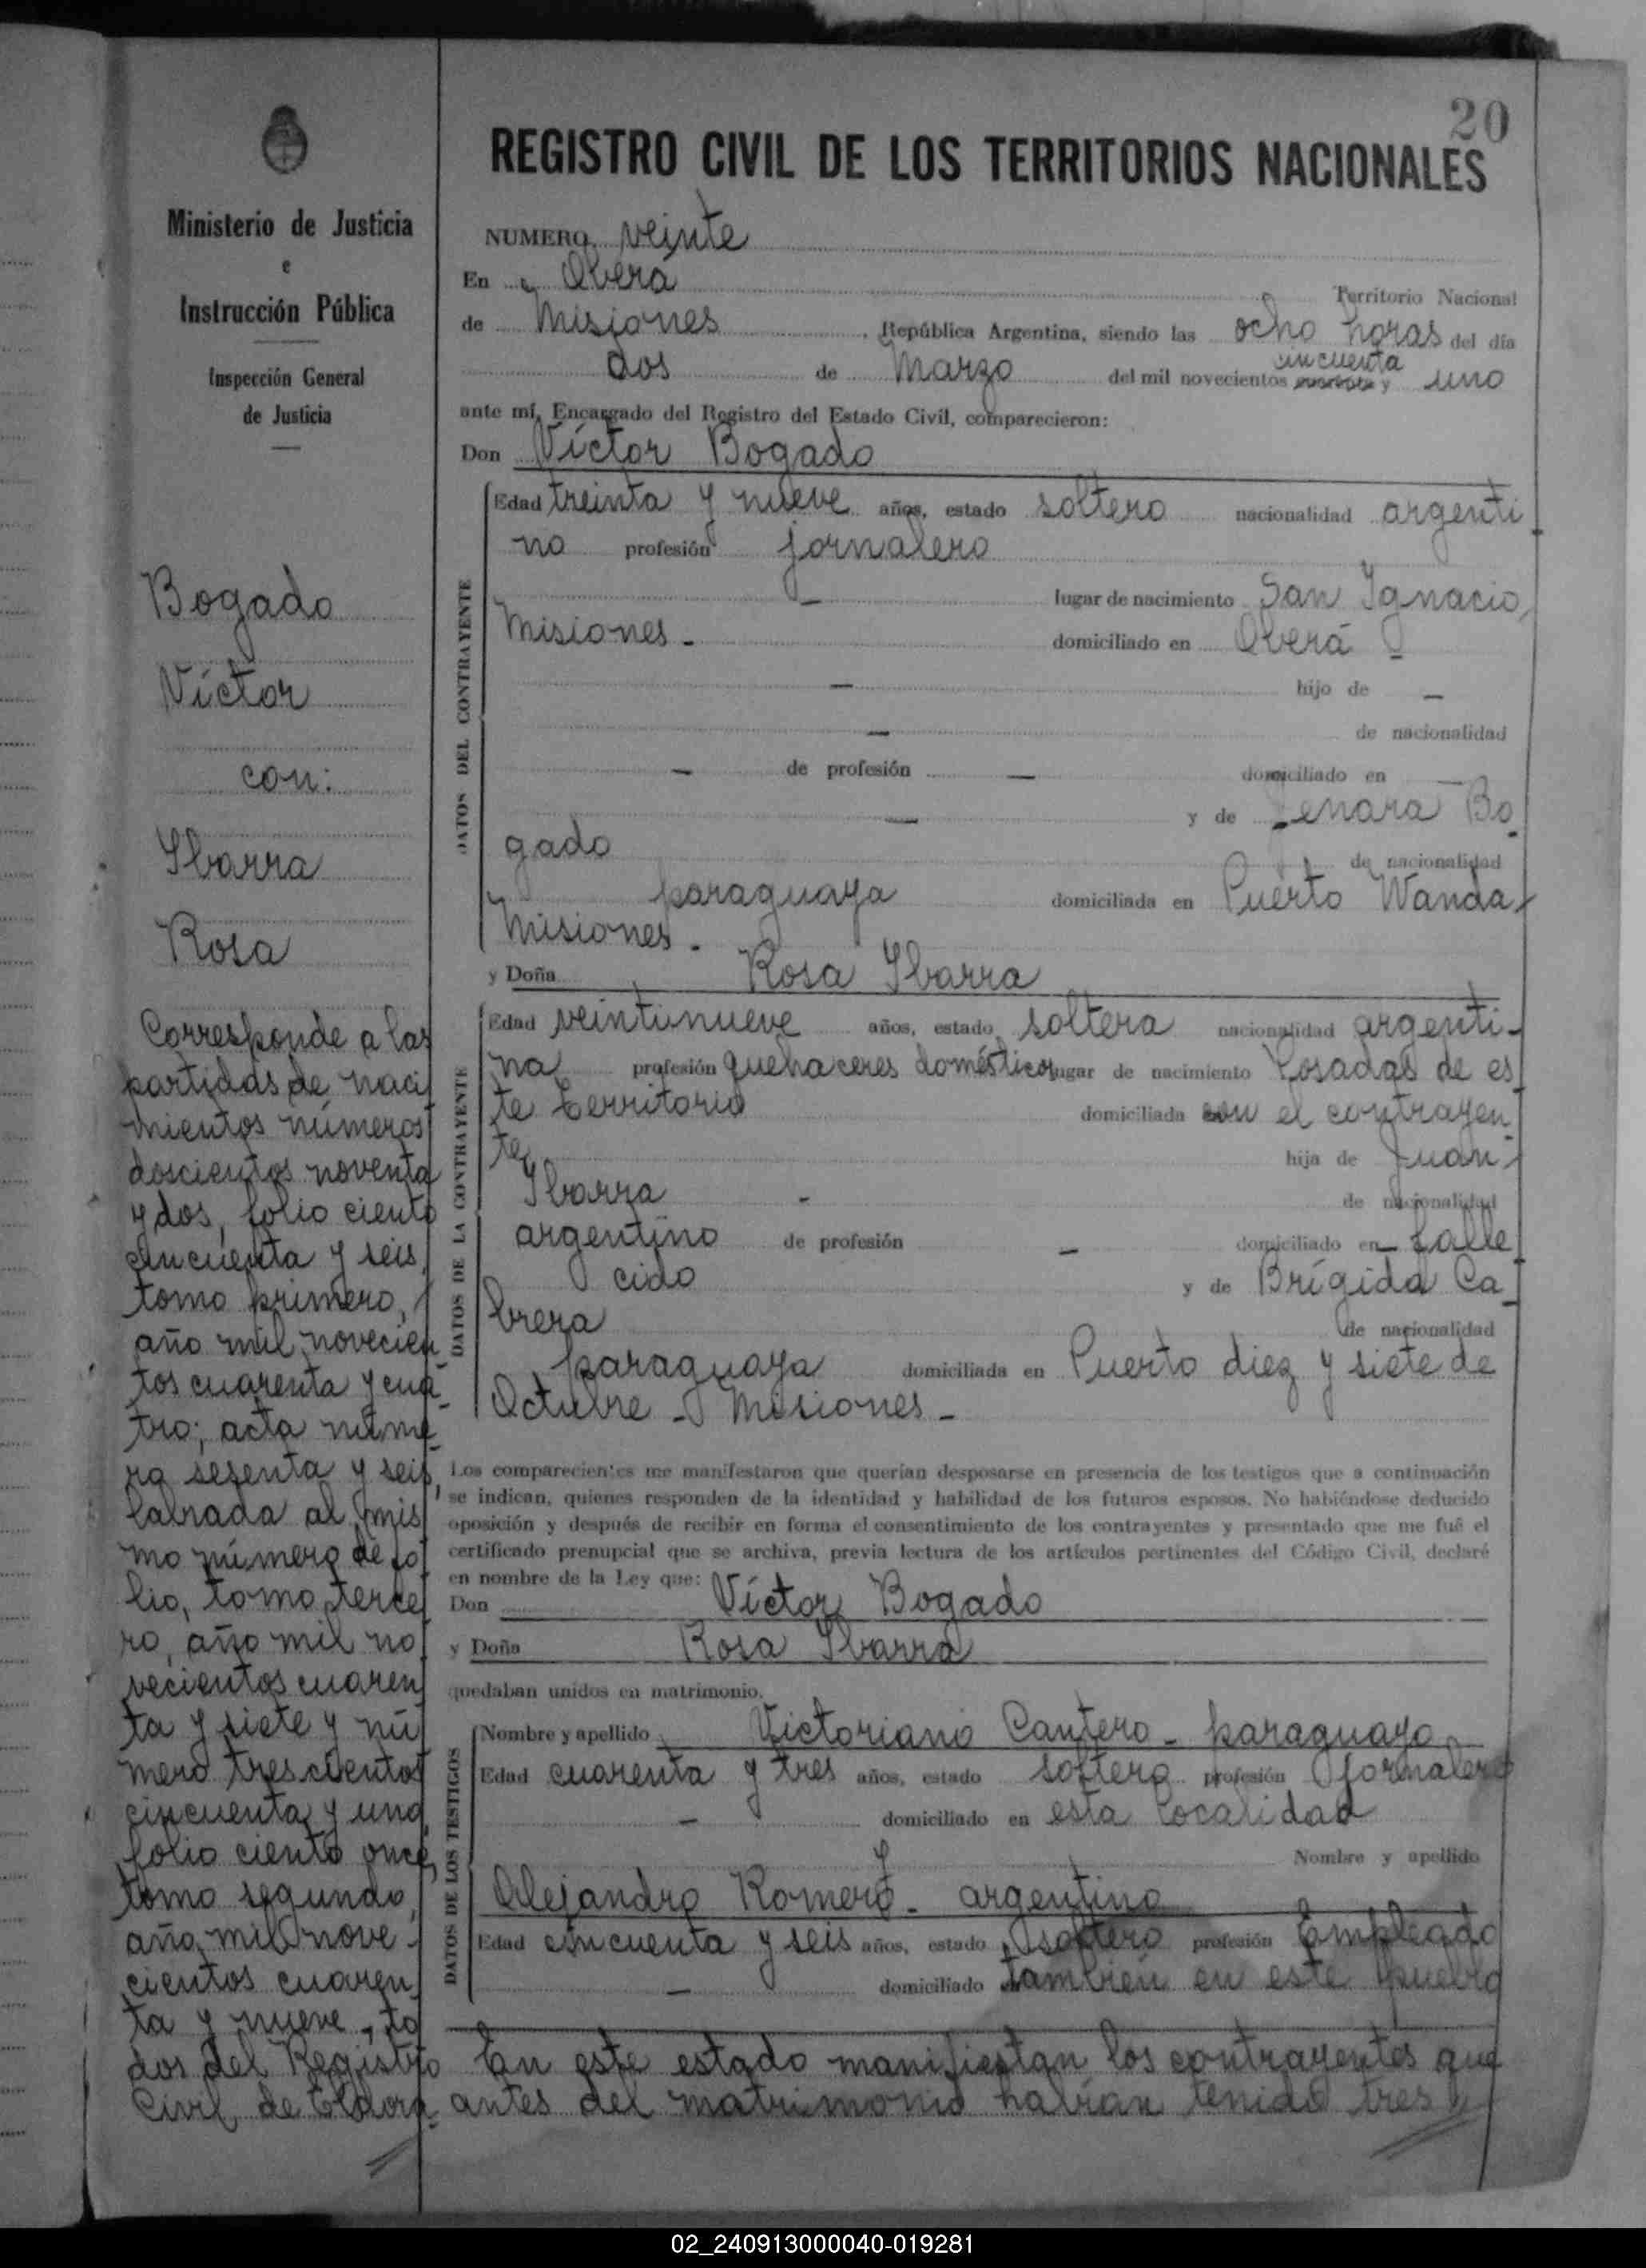 Ministerio de Justicia
e
Instrucción Pública
Inspección General
de Justicia
Bogado
Víctor
con:
Ybarra
Rosa
Corresponde a las
partidas de naci
mientos números
doscientos noventa
y dos, folio ciento
cincuenta y seis,
tomo primero,
año mil novecien
tos cuarenta y cua
tro; acta núme
ro sesenta y seis,
labrada al mis
mo número de fo
lio, tomo terce
ro, año mil no
vecientos cuaren
ta y siete y nú
mero trescientos
cincuenta y uno
folio ciento once,
tomo segundo,
año mil nove-
cientos cuaren
ta y nueve, to
dos del Registro
Civil de Eldora
20
REGISTRO CIVIL DE LOS TERRITORIOS NACIONALES
NUMERO veinte
En Oberá Territorio Nacional
de Misiones, República Argentina, siendo las ocho horas del día
dos de Marzo del mil novecientos cincuenta y uno
ante mí, Encargado del Registro del Estado Civil, comparecieron:
Don Víctor Bogado
DATOS DEL CONTRAYENTE
Edad treinta y nueve años, estado soltero nacionalidad argenti
no profesión jornalero
— lugar de nacimiento San Ignacio,
Misiones - domiciliado en Oberá -
— hijo de —
— de nacionalidad
— de profesión — domiciliado en —
— y de Jenara Bo
gado de nacionalidad
paraguaya domiciliada en Puerto Wanda
Misiones -
y Doña Rosa Ybarra
DATOS DE LA CONTRAYENTE
Edad veintinueve años, estado soltera nacionalidad argenti-
na profesión quehaceres domésticos lugar de nacimiento Posadas de es
te territorio domiciliada con el contrayen
te, hija de Juan
Ybarra - de nacionalidad
argentino de profesión — domiciliado en falle
cido y de Brígida Ca
brera de nacionalidad
paraguaya domiciliada en Puerto diez y siete de
Octubre - Misiones -
Los comparecientes me manifestaron que querían desposarse en presencia de los testigos que a continuación
se indican, quienes responden de la identidad y habilidad de los futuros esposos. No habiéndose deducido
oposición y después de recibir en forma el consentimiento de los contrayentes y presentado que me fué el
certificado prenupcial que se archiva, previa lectura de los artículos pertinentes del Código Civil, declaré
en nombre de la Ley que:
Don Víctor Bogado
y Doña Rosa Ybarra
quedaban unidos en matrimonio.
DATOS DE LOS TESTIGOS
Nombre y apellido Victoriano Cantero - paraguayo
Edad cuarenta y tres años, estado soltero profesión jornalero
— domiciliado en esta localidad
y Nombre y apellido
Alejandro Romero - argentino
Edad cincuenta y seis años, estado soltero profesión Empleado
— domiciliado también en este pueblo
En este estado manifiestan los contrayentes que
antes del matrimonio habían tenido tres
02_240913000040-019281